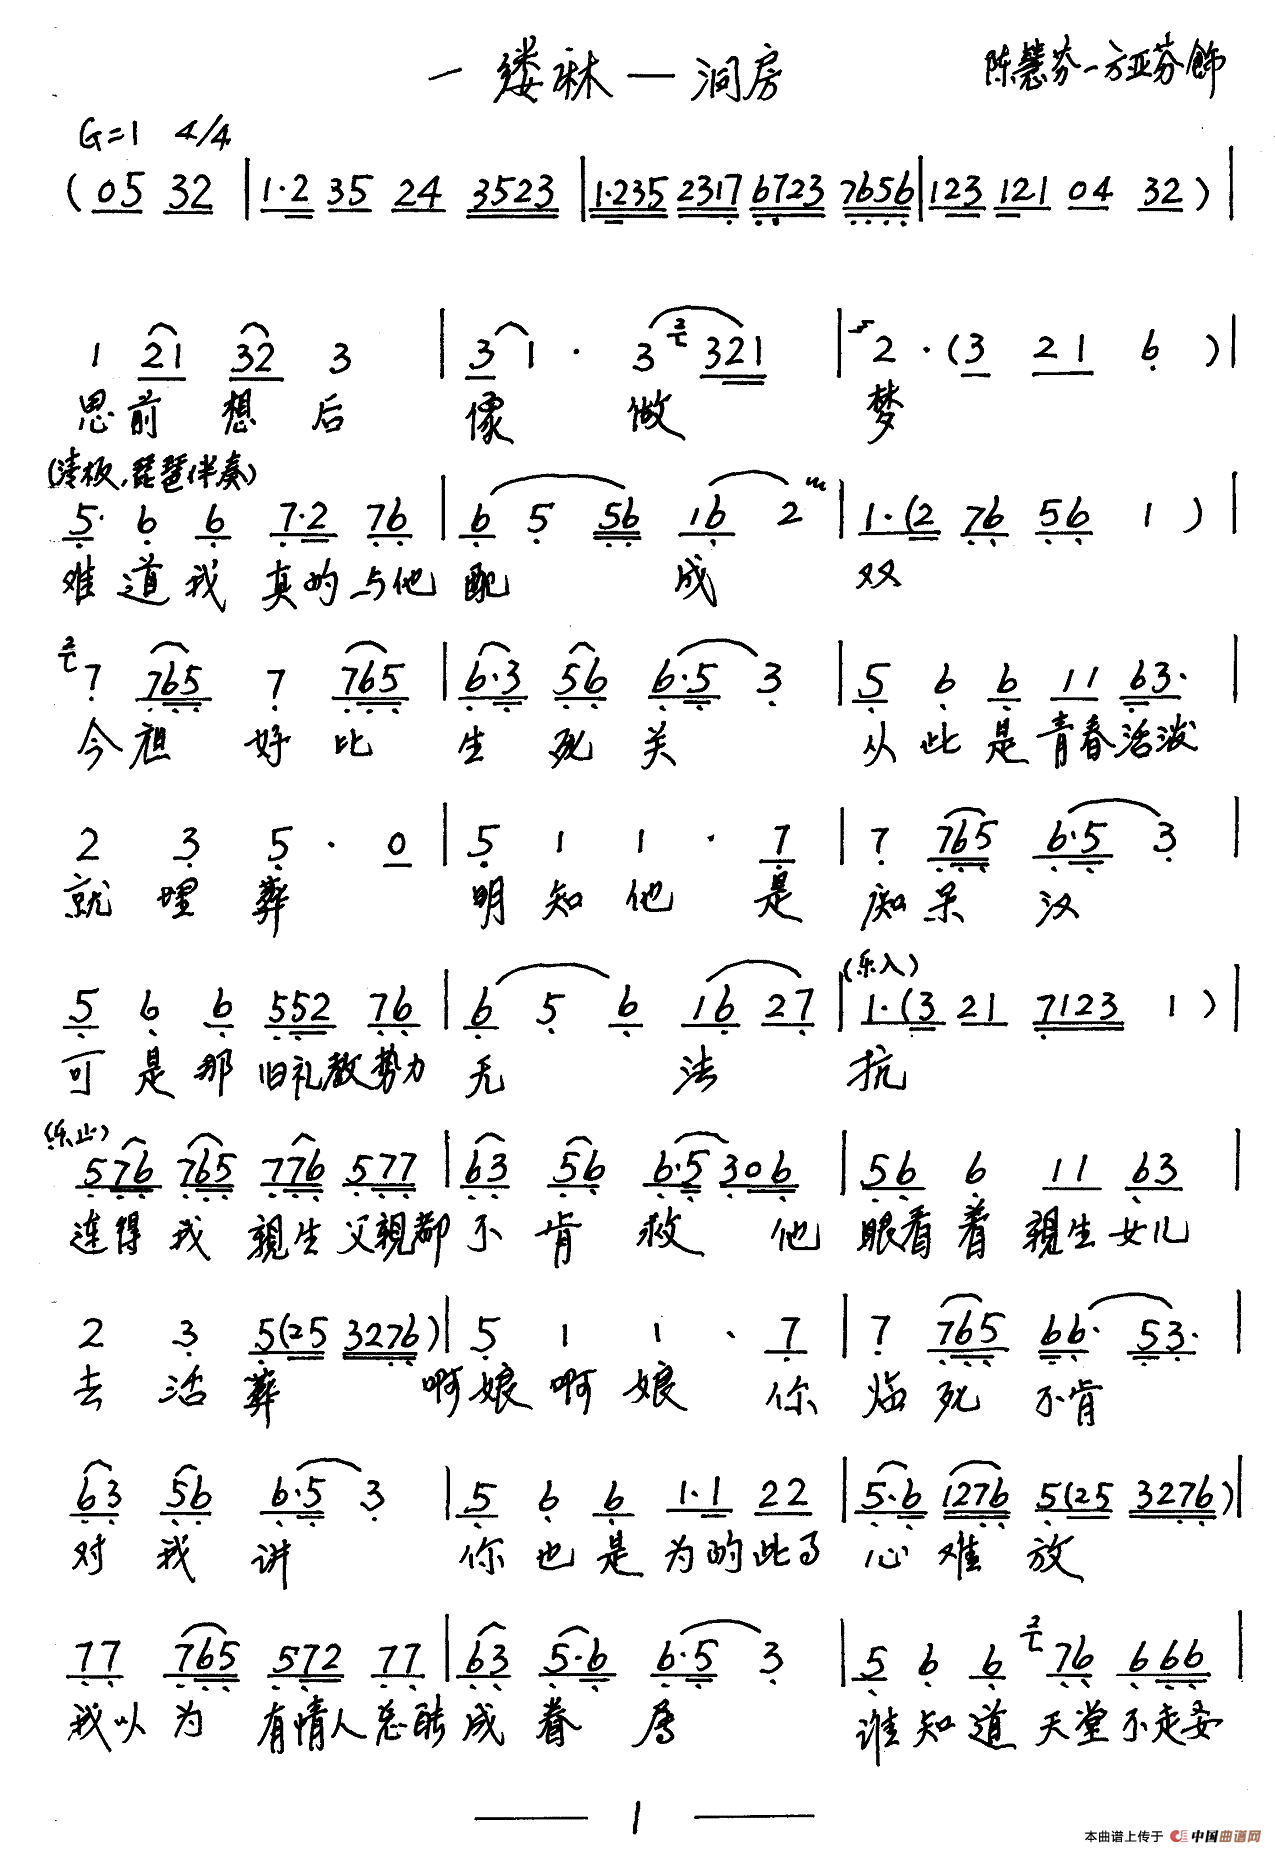 一缕麻—洞房
陈慧芬—方亚芬饰
G=1 4/4
(05 32 | 1·2 35 24 3523 | 1·235 2317 6723 7656 | 123 121 04 32) |
1 21 32 3 | 3 1 · 3 321 | 2 ·(3 21 6) |
思前想后 像 做 梦
(清板,琵琶伴奏)
5· 6 6 7·2 76 | 6 5 56 16 2 | 1·(2 76 56 1) |
难道我真的与他配 成 双
7 765 7 765 | 6·3 56 6·5 3 | 5 6 6 11 63· |
今 好比 生死关 从此是青春活泼
2 3 5 · 0 | 5 1 1 · 7 | 7 765 6·5 3 |
就埋葬 明知他是痴呆汉
(乐入)
5 6 6 552 76 | 6 5 6 16 27 | 1·(3 21 7123 1) |
可是那旧礼教势力无 法 抗
(乐止)
576 765 776 577 | 63 56 6·5 306 | 56 6 11 63 |
连得我親生父親都不肯救他眼看着親生女儿
2 3 5(25 3276) | 5 1 1 · 7 | 7 765 66· 53· |
去活葬 啊娘啊娘你临死不肯
63 56 6·5 3 | 5 6 6 1·1 22 | 5·6 1276 5(25 3276) |
对我讲 你也是为的此事心难放
77 765 572 77 | 63 5·6 6·5 3 | 5 6 6 76 666 |
我以为有情人总能成眷属 谁知道天堂不走要
1
本曲谱上传于 中国曲谱网